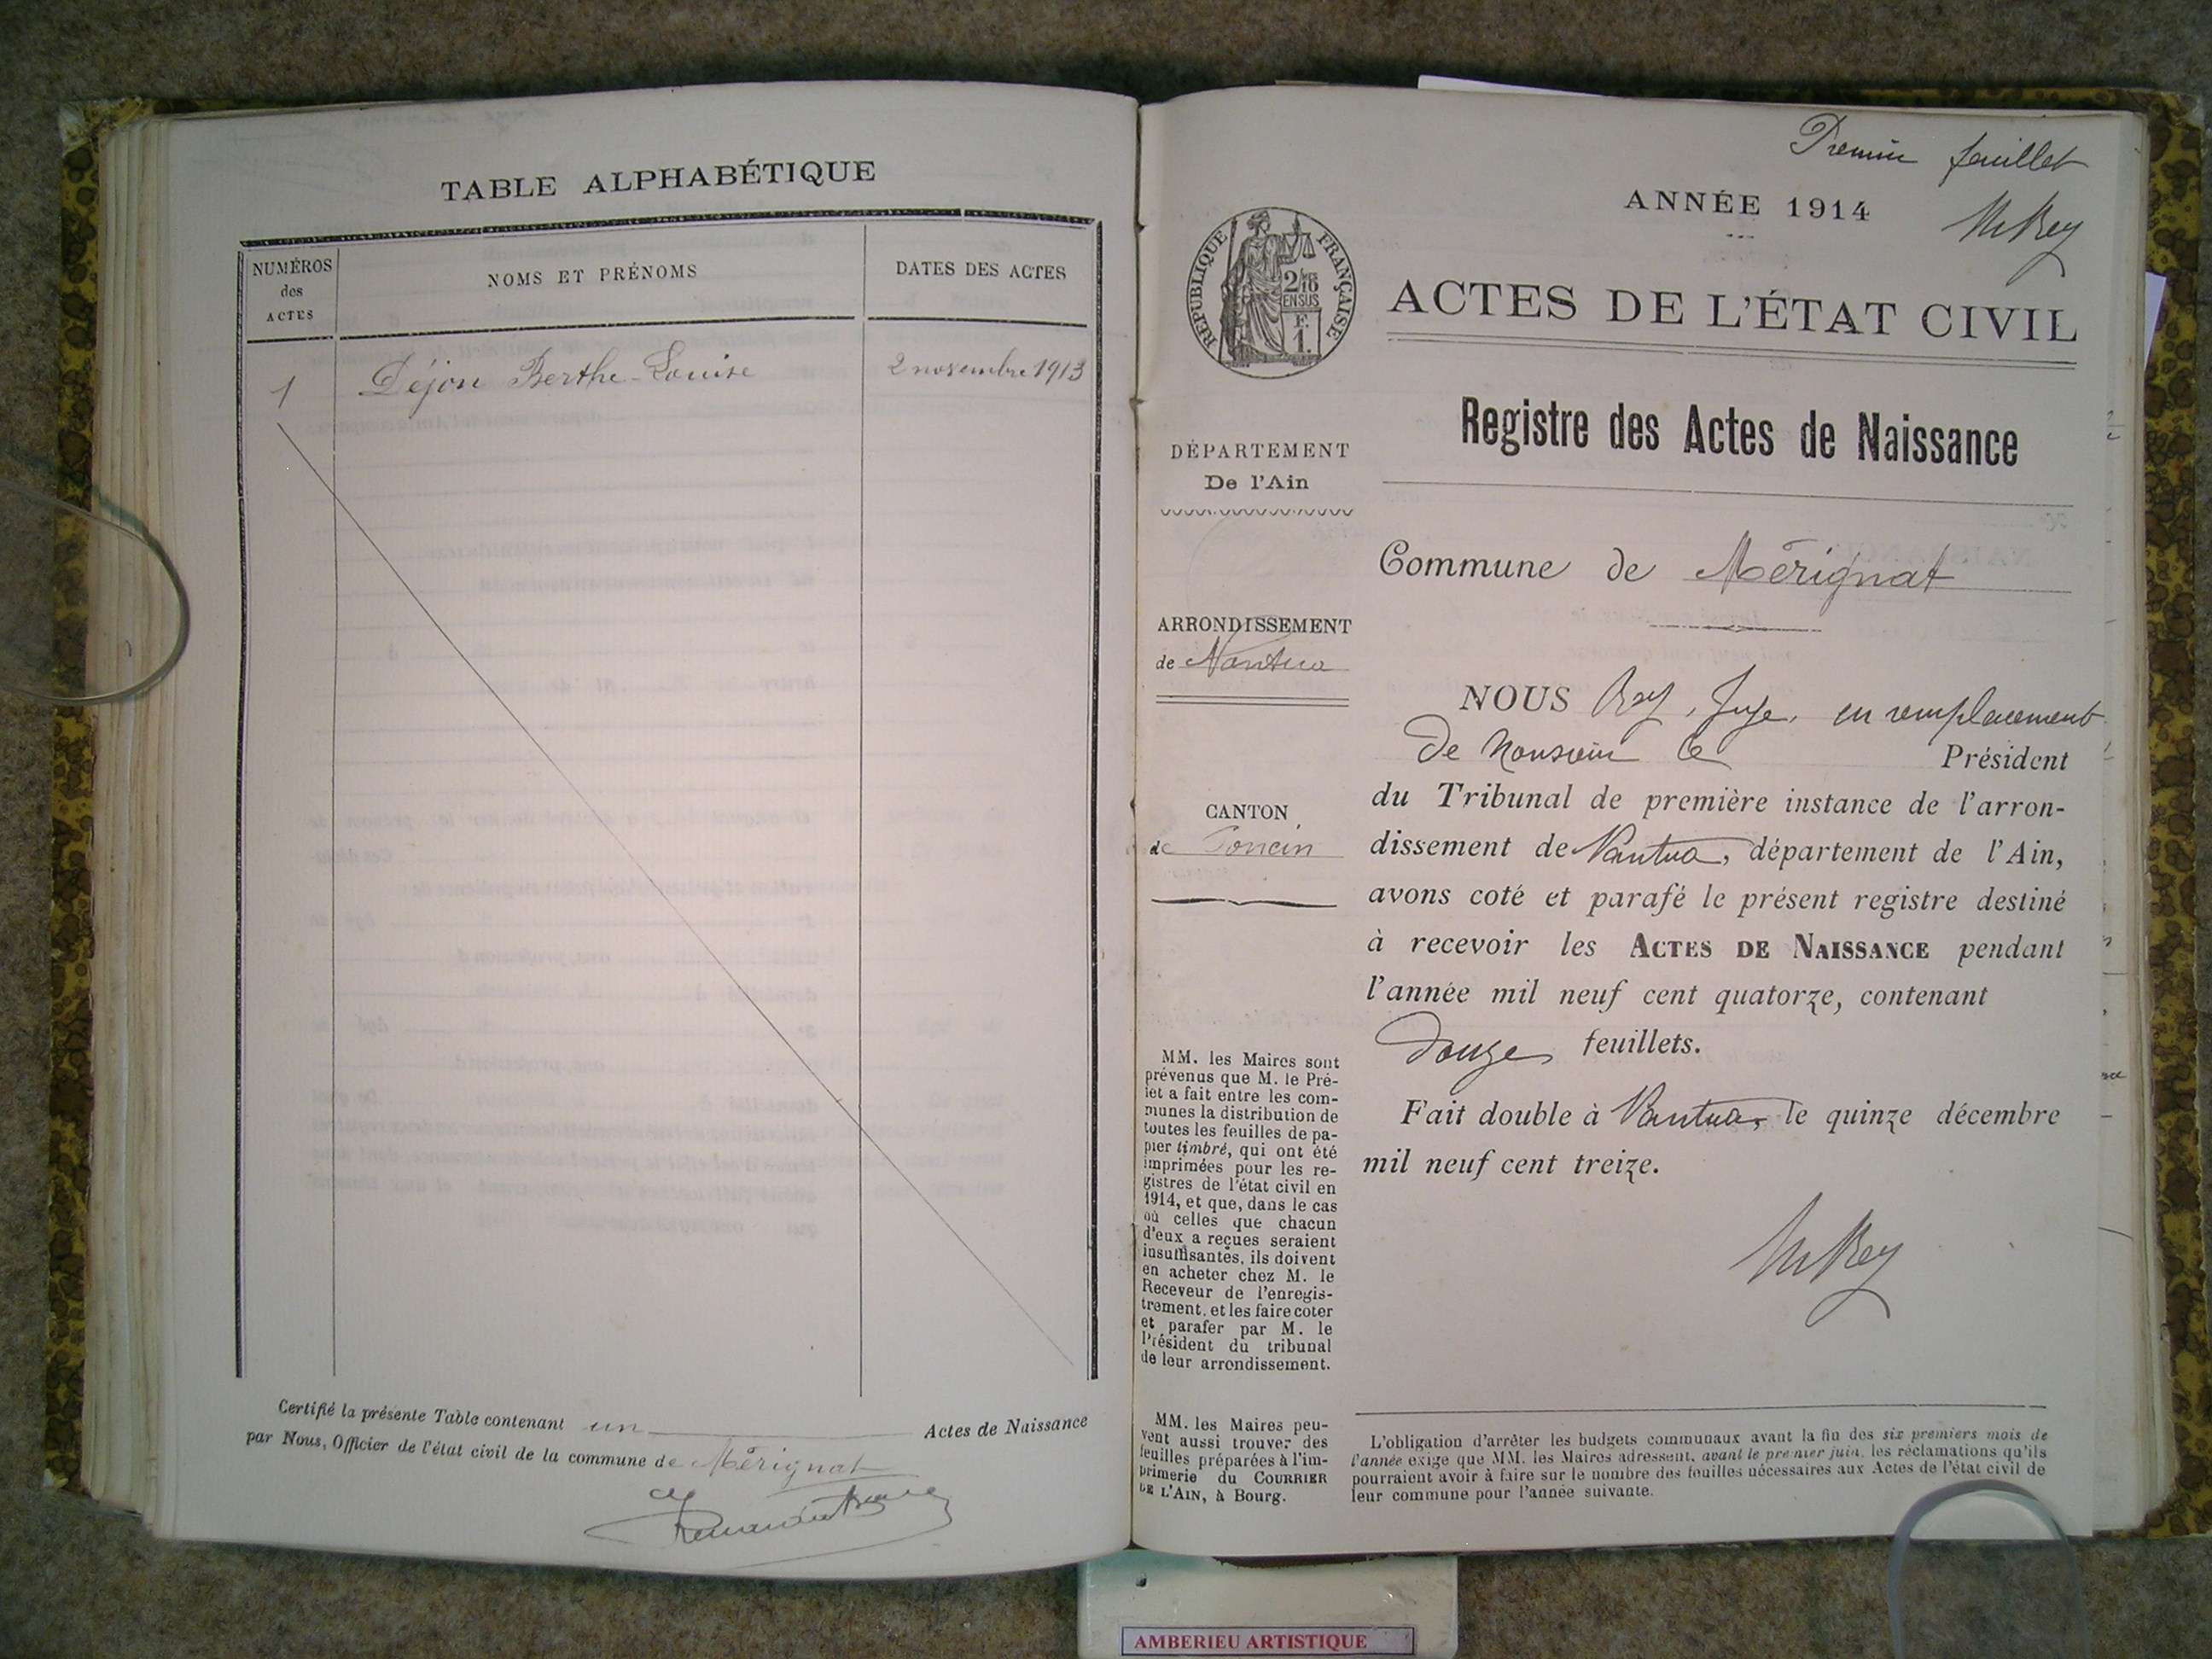 TABLE ALPHABÉTIQUE
NUMÉROS
des
ACTES
NOMS ET PRÉNOMS
DATES DES ACTES
1 Déjon Berthe-Louise 2 novembre 1913
Certifié la présente Table contenant un Actes de Naissance
par Nous, Officier de l'état civil de la commune de Mérignat
Premier feuillet
ANNÉE 1914
MRey
RÉPUBLIQUE FRANÇAISE
2/10 EN SUS
F.
1.
ACTES DE L'ÉTAT CIVIL
Registre des Actes de Naissance
DÉPARTEMENT
De l'Ain
ARRONDISSEMENT
de Nantua
CANTON
de Poncin
MM. les Maires sont
prévenus que M. le Pré-
fet a fait entre les com-
munes la distribution de
toutes les feuilles de pa-
pier timbré, qui ont été
imprimées pour les re-
gistres de l'état civil en
1914, et que, dans le cas
où celles que chacun
d'eux a reçues seraient
insuffisantes, ils doivent
en acheter chez M. le
Receveur de l'enregis-
trement, et les faire coter
et parafer par M. le
Président du tribunal
de leur arrondissement.
MM. les Maires peu-
vent aussi trouver des
feuilles préparées à l'im-
primerie du COURRIER
DE L'AIN, à Bourg.
Commune de Mérignat
NOUS Rey, Juge, en remplacement
de Monsieur le Président
du Tribunal de première instance de l'arron-
dissement de Nantua, département de l'Ain,
avons coté et parafé le présent registre destiné
à recevoir les ACTES DE NAISSANCE pendant
l'année mil neuf cent quatorze, contenant
douze feuillets.
Fait double à Nantua, le quinze décembre
mil neuf cent treize.
MRey
L'obligation d'arrêter les budgets communaux avant la fin des six premiers mois de
l'année exige que MM. les Maires adressent, avant le premier juin, les réclamations qu'ils
pourraient avoir à faire sur le nombre des feuilles nécessaires aux Actes de l'état civil de
leur commune pour l'année suivante.
AMBERIEU ARTISTIQUE